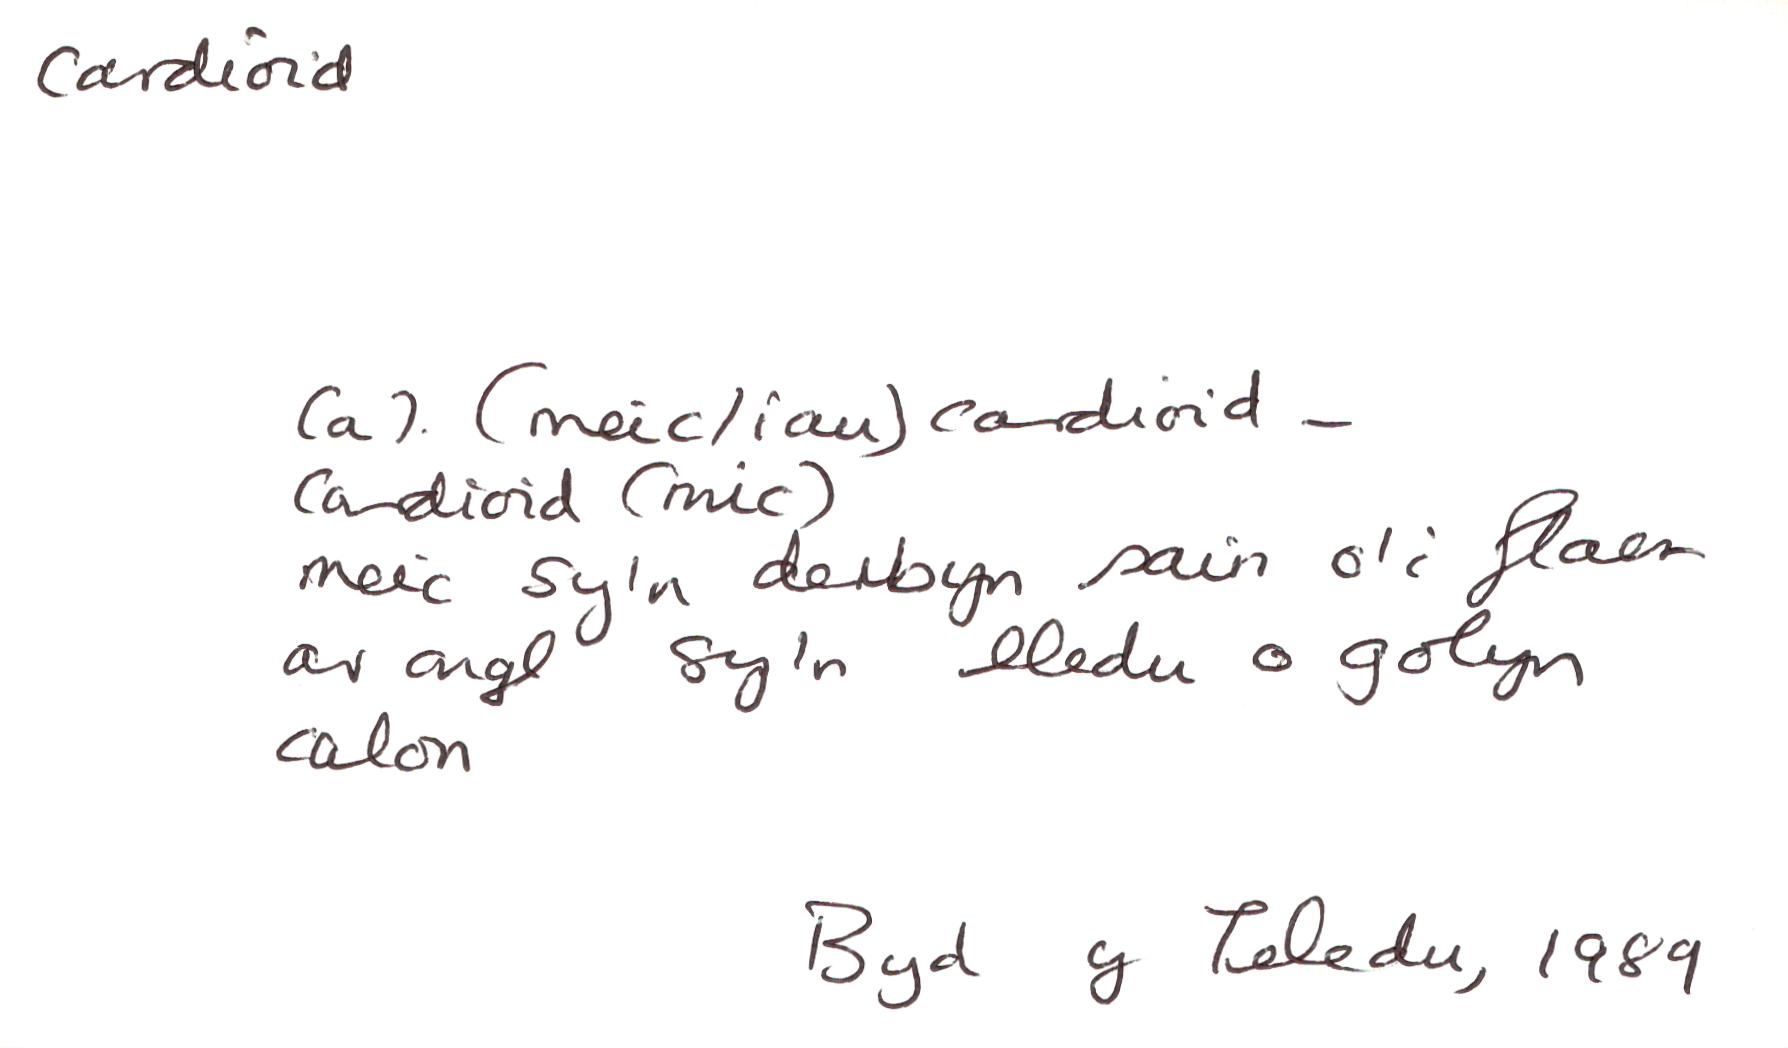 cardioid
(a). (meic/iau) cardioid –
cardioid (mic)
meic sy'n derbyn sain o'i flaen
ar ongl sy'n lledu o golyn
calon
Byd y Teledu, 1989